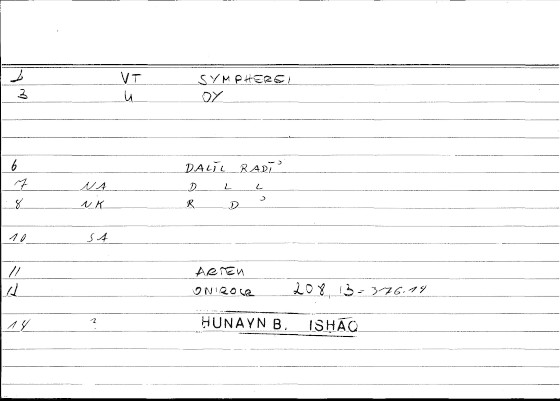 1 VT SYMPHEREI
3 U OY
6 DALĪL RADĪʾ
7 NA D L L
8 NK R D ʾ
10 SA
11 ARTEM
12 ONIROCR 208, 13 = 376.14
14 ? HUNAYN B. ISHĀQ